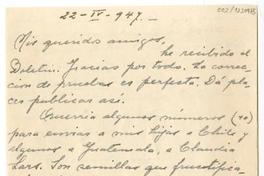 22-IV-947.
Mis queridos amigos,
he recibido el
Boletín. Gracias por todo. La correc-
ción de pruebas es perfecta. Da pla-
cer publicar así.
Querría algunos números (10)
para enviar a mis hijos a Chile y
algunos a Guatemala, a Claudia
Lars. Son semillas que fructifica-